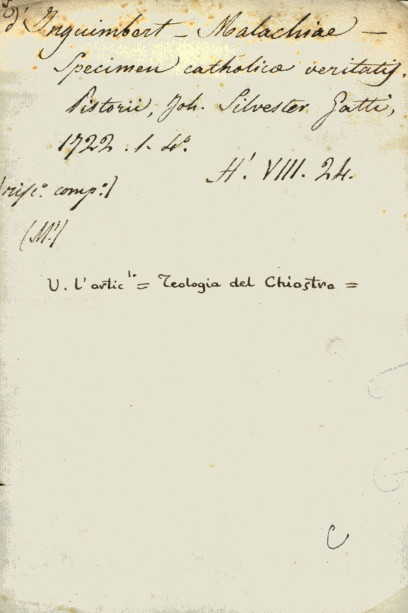 d'Inguimbert — Malachiae —
Specimen catholicæ veritatis.
Pistorii, Joh. Silvester Gatti,
1722. 1. 4º.
H'. VIII. 24.
[rifº. compº.]
(Mº)
V. l'artic.lo = Teologia del Chiostro =
C